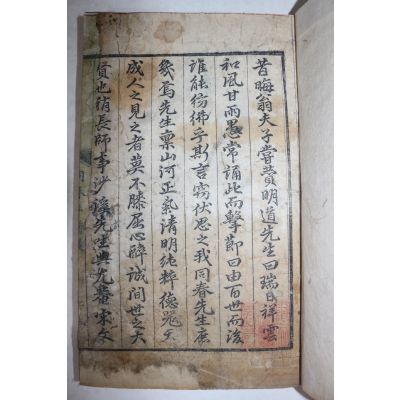 昔晦翁夫子嘗贊明道先生曰瑞日祥雲
和風甘雨愚常誦此而擊節曰由百世而後
誰能彷彿乎斯言竊伏思之我同春先生庶
幾焉先生稟山河正氣清明純粹德器
成人之見之者莫不膝屈心醉誠間世之大
賢也稍長師事沙溪先生與尤菴宋文